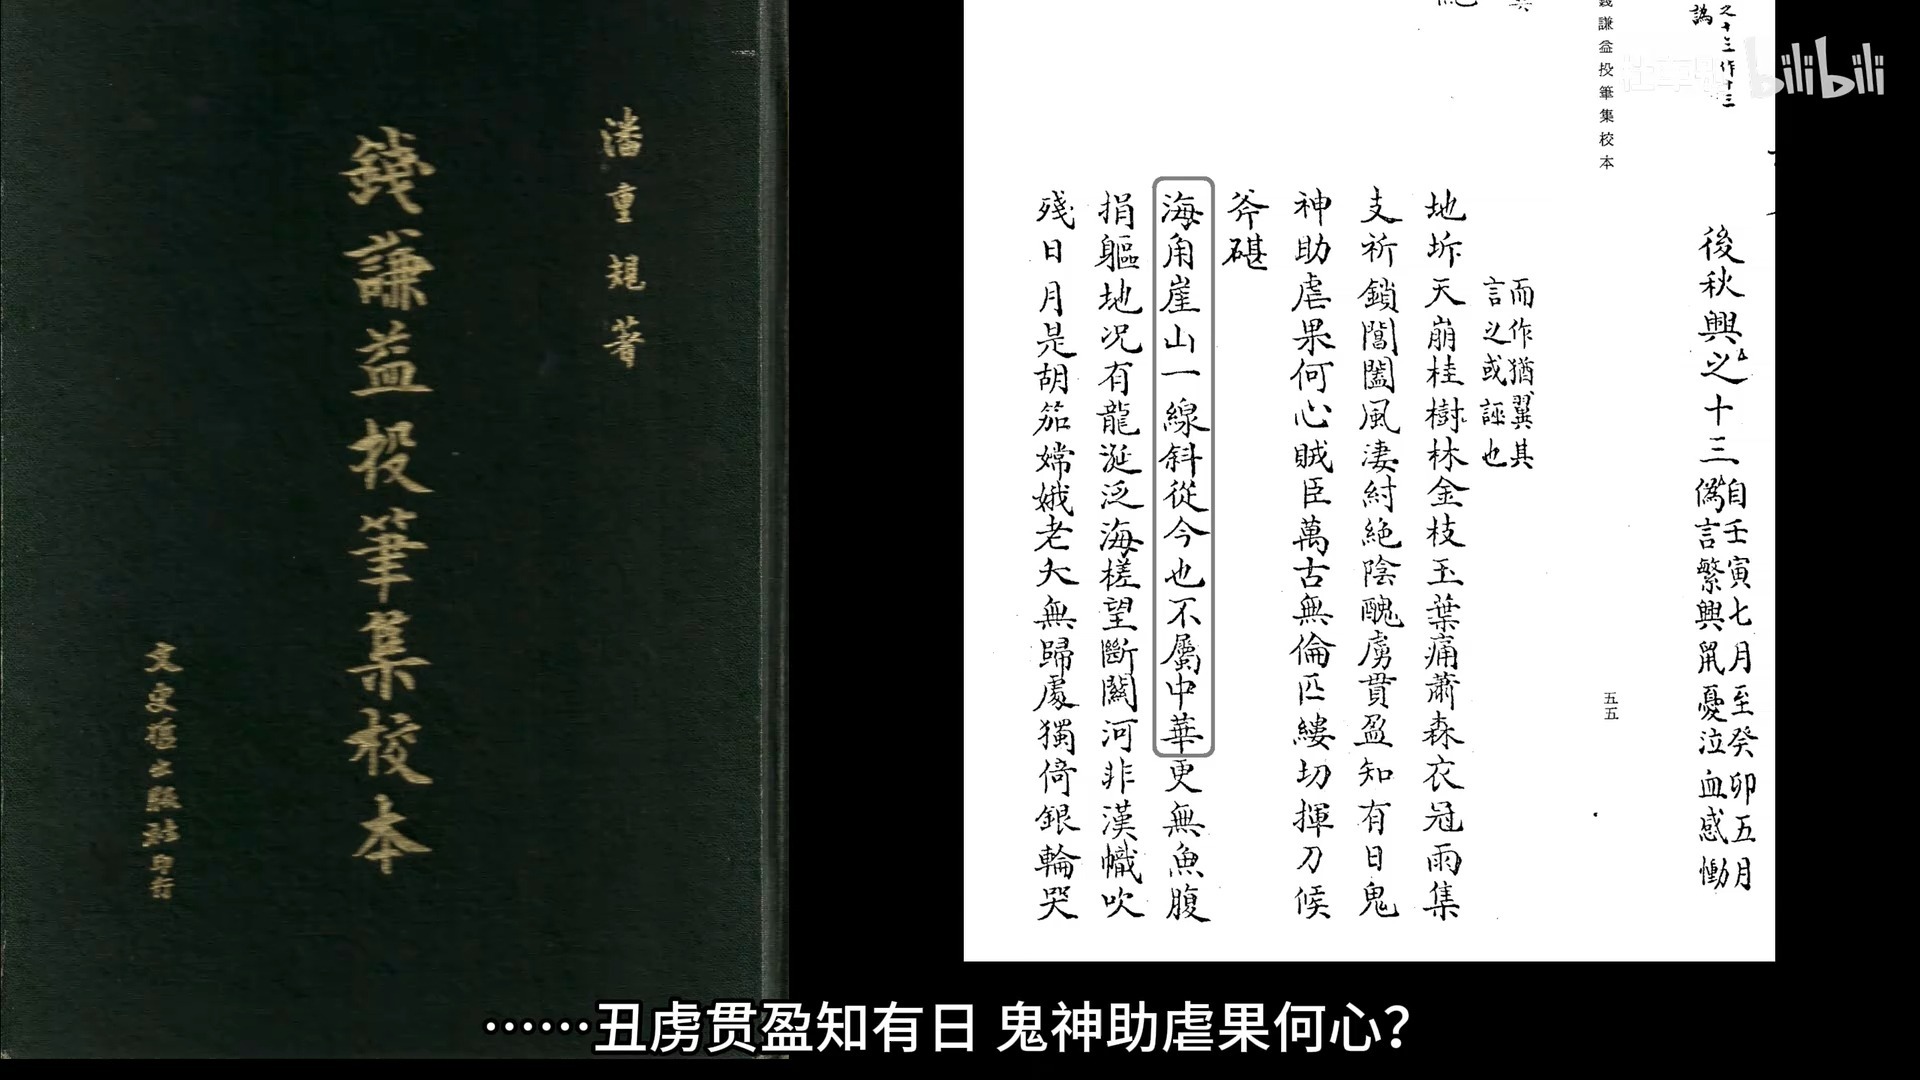 潘重規著
錢謙益投筆集校本
文史哲出版社印行
之十三作十三
譌
錢謙益投筆集校本
五五
後秋興之十三自壬寅七月至癸卯五月
譌言繁興鼠憂泣血感慟
而作猶冀其
言之或誣也
地坼天崩桂樹林金枝玉葉痛蕭森衣冠雨集
支祈鎖閶闔風淒紂絕陰醜虜貫盈知有日鬼
神助虐果何心賊臣萬古無倫匹縷切揮刀候
斧碪
海角崖山一線斜從今也不屬中華更無魚腹
捐軀地况有龍涎泛海槎望斷關河非漢幟吹
殘日月是胡笳嫦娥老大無歸處獨倚銀輪哭
bilibili
……丑虏贯盈知有日 鬼神助虐果何心？